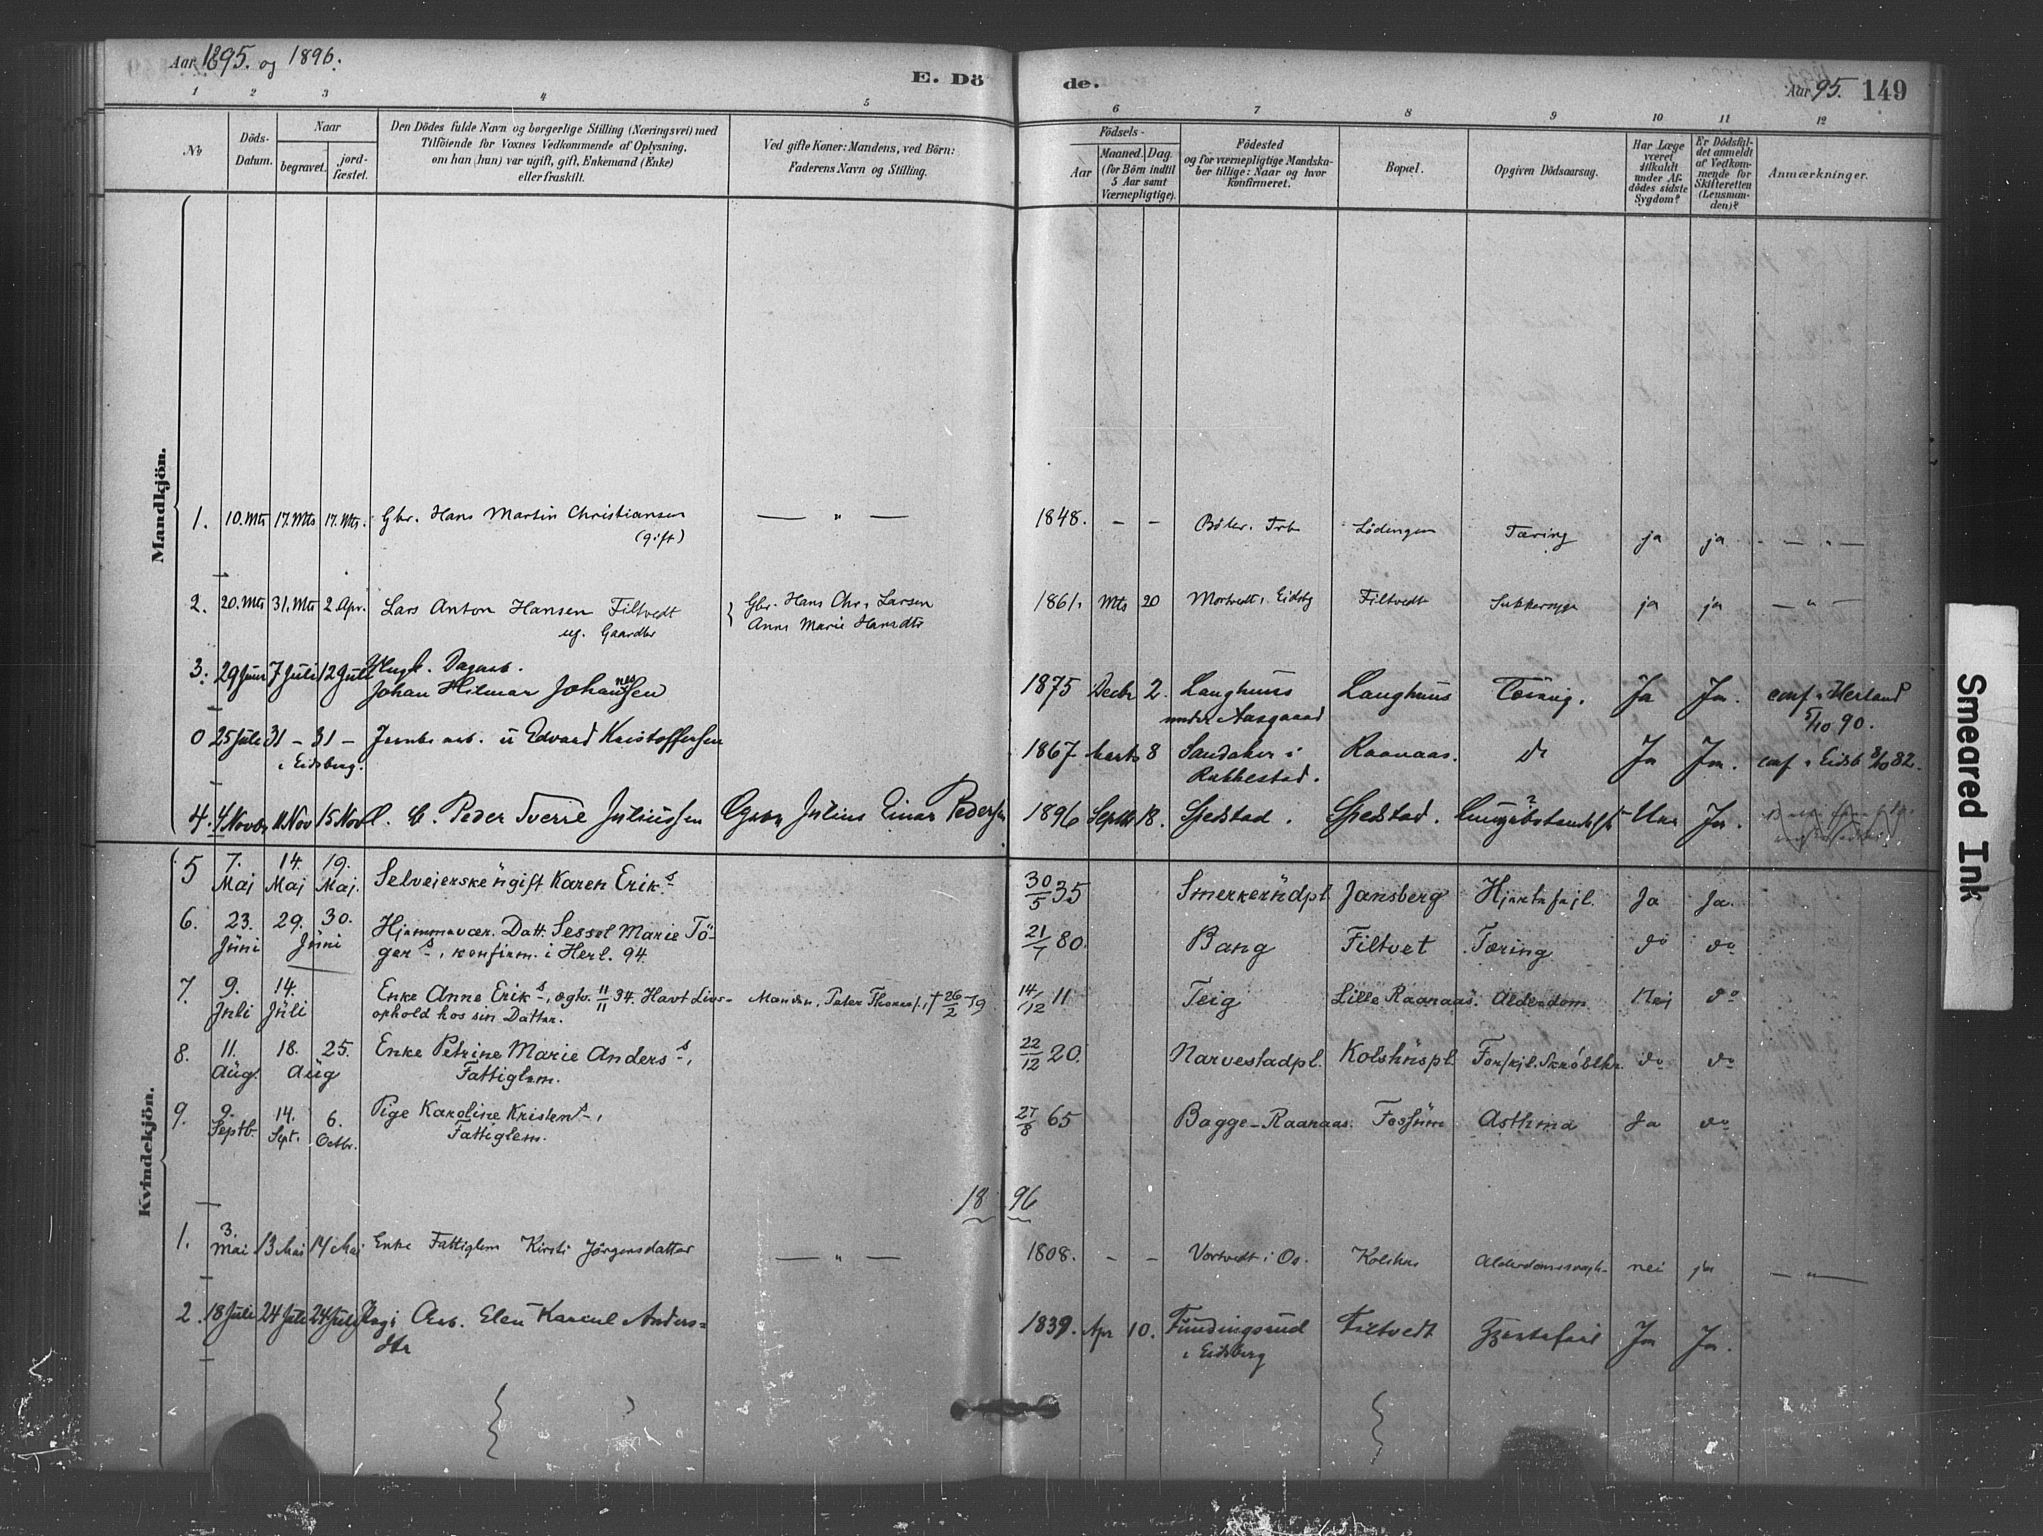 Aar 1895. og 1896.
E. Dö
de.
Aar 95. 149
1 2 3 4 5 6 7 8 9 10 11 12
No
Döds-
Datum.
Naar
begravet.
jord-
fæstet.
Den Dödes fulde Navn og borgerlige Stilling (Næringsvei) med
Tilföiende for Voxnes Vedkommende af Oplysning,
om han (hun) var ugift, gift, Enkemand (Enke)
eller fraskilt.
Ved gifte Koner: Mandens, ved Börn:
Faderens Navn og Stilling.
Födsels-
Aar
Maaned. Dag.
(for Börn indtil
5 Aar samt
Værnepligtige).
Födested
og for værnepligtige Mandska-
ber tillige: Naar og hvor
konfirmeret.
Bopæl.
Opgiven Dödsaarsag.
Har Læge
været
tilkaldt
under Af-
dödes sidste
Sygdom?
Er Dödsfal-
det anmeldt
af Vedkom-
mende for
Skifteretten
(Lensman-
den)?
Anmærkninger.
Mandkjön.
1. 10. Mts 17. Mts 17. Mts. Gbr. Hans Martin Christiansen — " — 1848. - - Böler. Trb Lödengen Tæring ja ja - — " —
(gift)
2. 20. Mts 31. Mts 2. Apr. Lars Anton Hansen Filtvedt Gbr. Hans Chr. Larsen 1861. Mts 20 Mortvedt i Eidsbg Filtvedt Sukkersyge ja ja — " —
ug. Gaardbr Anne Marie Hansdtr
3. 29 Juni 7 Juli 12 Juli Ungk. Dagarb.
Johan Hilmar Johannessen 1875 Decbr 2. Langhuus Langhuus Tæring. Ja Ja. conf. i Herland
under Aasgaard 5/10 90.
0 25 Juli 31 - 31 - Jernb. arb. u Edvard Kristoffersen 1867 Marts 8 Sandaker i Raanaas. do Ja Ja. conf. i Eidsb 8/10 82.
i Eidsberg. Rakkestad.
4. 4 Novbr 11. Nov 15 Nov Peder Sverre Juliussen Julius Einar Pedersen 1896 Septbr 18. Spedstad. Spedstad. ? Ja.
Kvindekjön.
5 7. Maj 14. Maj 19. Maj. Selveierske ugift Karen Eriks 30/5 35 Smerkerudpl. Jansberg Hjertefejl. Ja Ja.
6. 23. Juni 29. 30. Juni Hjemmevær. Datt. Sessel Marie Tö-
gers, konfirm. i Herl. 94. 21/7 80. Bang Filtvet Tæring do do
7. 9. Juli 14. Juli Enke Anne Eriks, ægtv. 11/11 34. Havt Livs-
ophold hos sin Datter. Manden, Peter Thores., † 26/2 79 14/12 11 Teig Lille Raanaas. Alderdom Nei do
8. 11. Aug. 18. 25. Aug Enke Petrine Marie Anders,
Fattiglem. 22/12 20. Narvestadpl. Kolshuspl. do do
9. 9. Septb. 14. Sept. 6. Octbr. Pige Karoline Kristens,
Fattiglem. 27/8 65 Bagge-Raanaas. Fossum Asthma Ja do
18 96
1. 3. Mai 13 Mai 14 Mai Enke Fattiglem Kirsti Jörgensdatter — " — 1808. - - Vortvedt i Os. Kolshus nei ja — " —
2. 18 Juli 24 Juli 24 Juli Arb. Elen Karine Anders-
dtr 1839. Apr 10. Fundingsrud Filtvedt Hjertefeil Ja Ja.
i Eidsberg
Smeared Ink